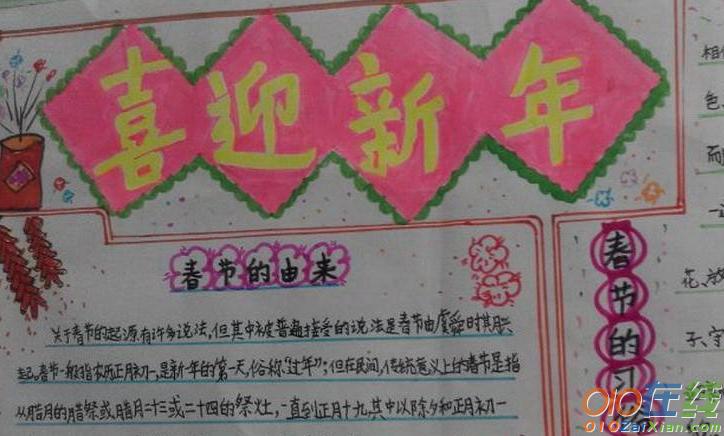 喜迎新年
春节的由来
关于春节的起源有许多说法,但其中被普遍接受的说法是春节由虞舜时期兴
起。春节一般指农历正月初一,是新年的第一天,俗称"过年";但在民间,传统意义上的春节是指
从腊月的腊祭或腊月二十三或二十四的祭灶,一直到正月十九,其中以除夕和正月初一
春节的习
相
色
而
一
花、放
子、守
010在线
010ZaiXian.com